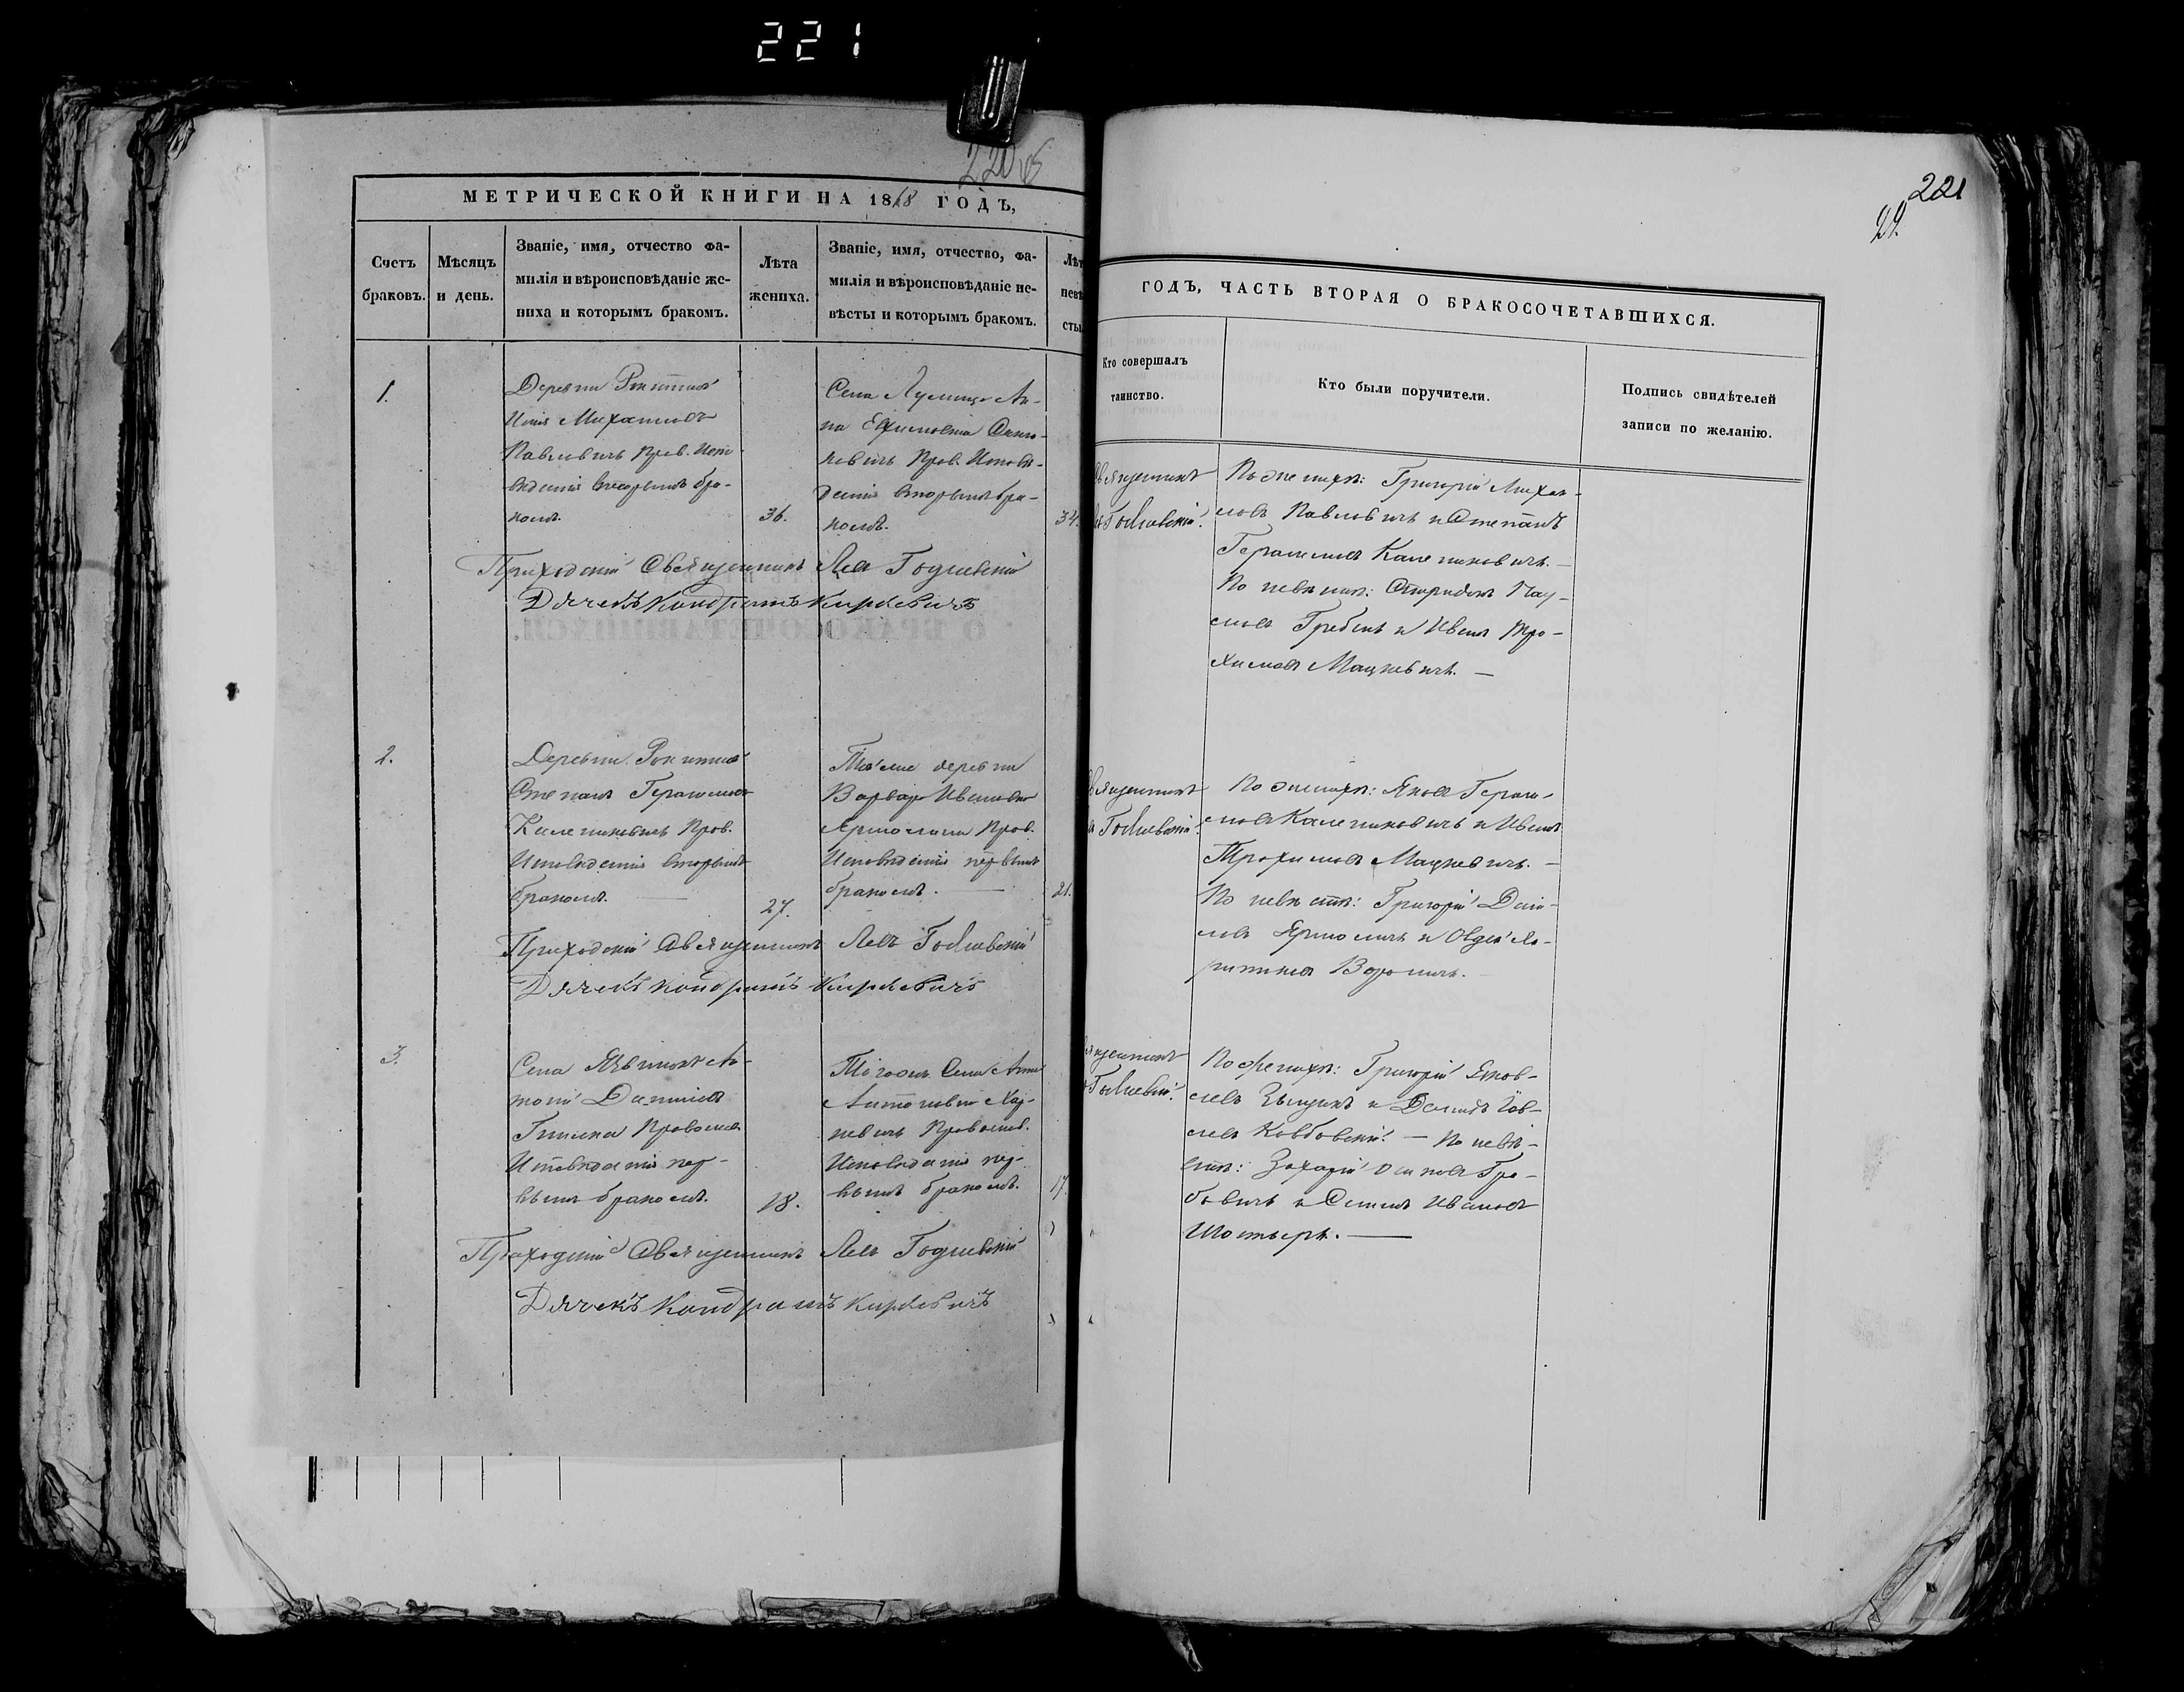 221
220 об
МЕТРИЧЕСКОЙ КНИГИ НА 1868 ГОДЪ,
Счетъ браковъ.
Мѣсяцъ и день.
Званіе, имя, отчество фа-
милія и вѣроисповѣданіе же-
ниха и которымъ бракомъ.
Лѣта жениха.
Званіе, имя, отчество, фа-
милія и вѣроисповѣданіе не-
вѣсты и которымъ бракомъ.
Лѣт
невѣ
сты
1.
Деревни
Михаиловъ
Павловичъ Прав. Испо-
вѣданія вторымъ бра-
комъ.
36.
Села
на Ефимовна
Прав. Исповѣ-
данія вторымъ бра-
комъ.
34.
Приходскій Священникъ Левъ Годлевскій
Дячекъ Кондратъ Киркевичъ
2.
Деревни
Степанъ Герасимовъ
Калениковичъ Прав.
Исповѣданія вторымъ
бракомъ.
27.
Той же деревни
Варвара Иванова
Прав.
Исповѣданія первымъ
бракомъ.
21.
Приходскій Священникъ Левъ Годлевскій
Дячекъ Кондратъ Киркевичъ
3.
Села Ан-
тоній Даниловъ
Православ.
Исповѣданія пер-
вымъ бракомъ.
18.
Тогожъ Села Анна
Антоніева
Православ.
Исповѣданія пер-
вымъ бракомъ.
17.
Приходскій Священникъ Левъ Годлевскій
Дячекъ Кондратъ Киркевичъ
221
ГОДЪ, ЧАСТЬ ВТОРАЯ О БРАКОСОЧЕТАВШИХСЯ.
Кто совершалъ
таинство.
Кто были поручители.
Подпись свидѣтелей
записи по желанію.
Священникъ
Годлевскій.
По женихѣ: Григорій Михаи-
ловъ Павловичъ и Степанъ
Герасимовъ Калениковичъ.—
По невѣстѣ: Спиридонъ Пау-
ловъ Гребень и Иванъ Тро-
химовъ Мацкевичъ. —
Священникъ
Годлевскій.
По женихѣ: Яковъ Гераси-
мовъ Калениковичъ и Иванъ
Трохимовъ Мацкевичъ. —
По невѣстѣ: Григорій Дани-
ловъ
Священникъ
Годлевскій.
По женихѣ: Григорій Яков-
левъ и Демидъ
— По невѣ-
стѣ: Захарій Осиповъ Гра-
бовичъ и Семенъ Ивановъ
Шостыръ. —